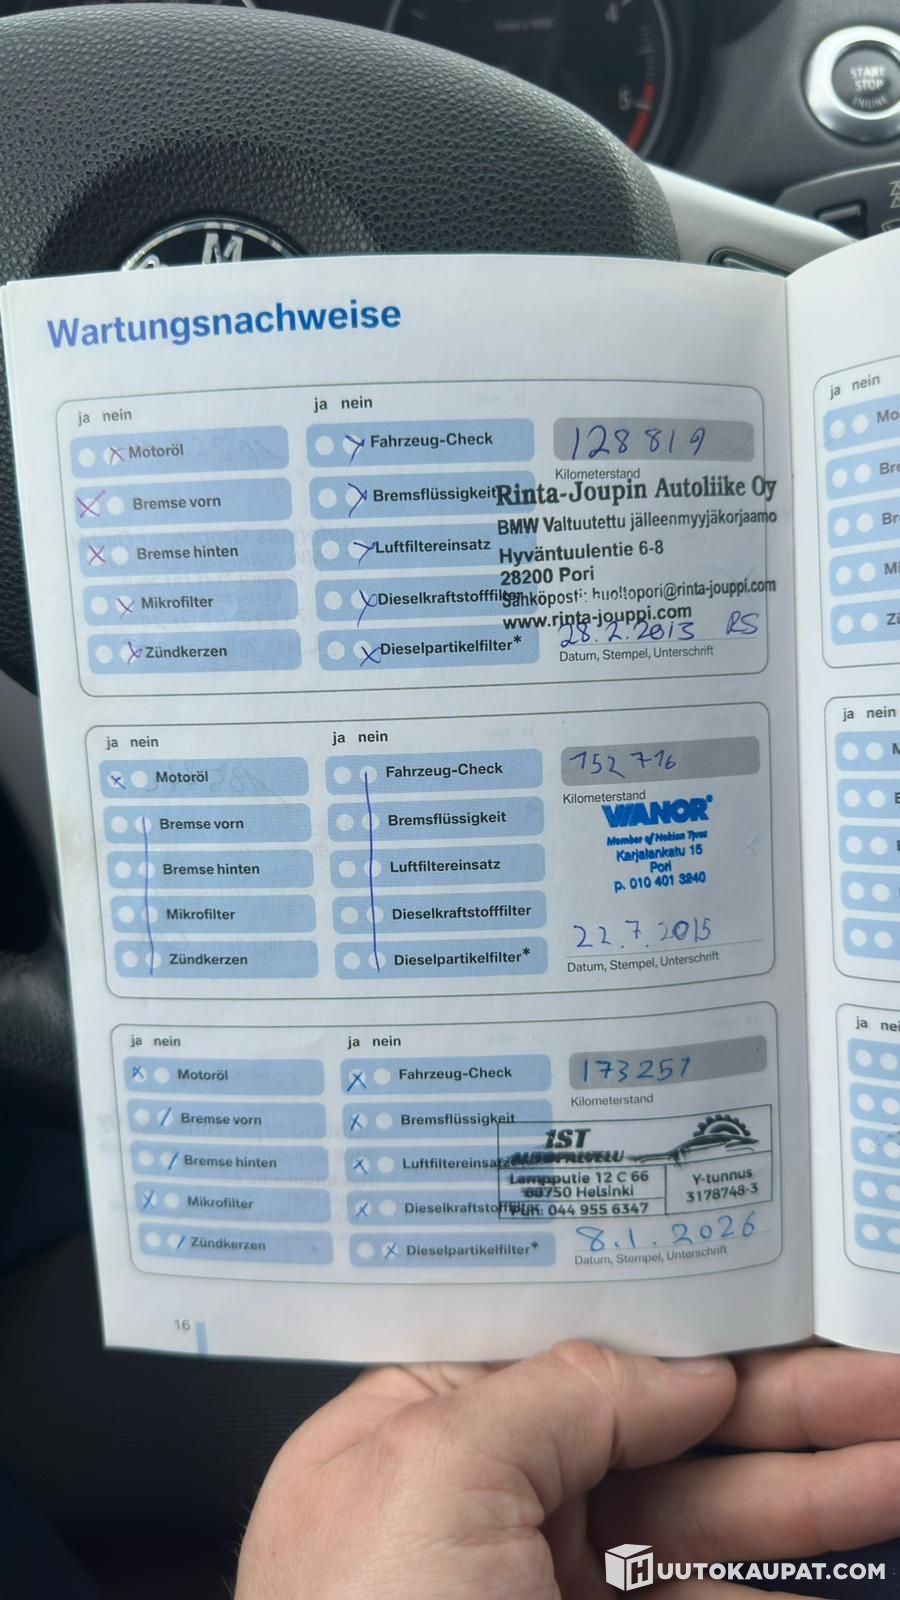 4
5
START
STOP
ENGINE
M
Wartungsnachweise
ja nein
ja nein
Motoröl
Fahrzeug-Check
128819
Kilometerstand
Bremse vorn
Bremsflüssigkeit
Rinta-Joupin Autoliike Oy
BMW Valtuutettu jälleenmyyjäkorjaamo
Bremse hinten
Luftfiltereinsatz
Hyväntuulentie 6-8
28200 Pori
Mikrofilter
Dieselkraftstofffilter
Sähköposti: huoltopori@rinta-jouppi.com
www.rinta-jouppi.com
Zündkerzen
Dieselpartikelfilter*
28.2.2013 RS
Datum, Stempel, Unterschrift
ja nein
ja nein
Motoröl
Fahrzeug-Check
152 716
Kilometerstand
Bremse vorn
Bremsflüssigkeit
WANOR
Member of Nokian Tyres
Karjalankatu 15
Pori
p. 010 401 3240
Bremse hinten
Luftfiltereinsatz
Mikrofilter
Dieselkraftstofffilter
22.7.2015
Zündkerzen
Dieselpartikelfilter*
Datum, Stempel, Unterschrift
ja nein
ja nein
Motoröl
Fahrzeug-Check
173251
Kilometerstand
Bremse vorn
Bremsflüssigkeit
1ST
AUTOPALVELU
Bremse hinten
Luftfiltereinsatz
Lampputie 12 C 66
00750 Helsinki
Puh: 044 955 6347
Y-tunnus
3178748-3
Mikrofilter
Dieselkraftstofffilter
Zündkerzen
Dieselpartikelfilter*
8.1.2026
Datum, Stempel, Unterschrift
16
ja nein
Mo
Bre
Br
Mi
Zü
ja nein
ja nei
HUUTOKAUPAT.COM